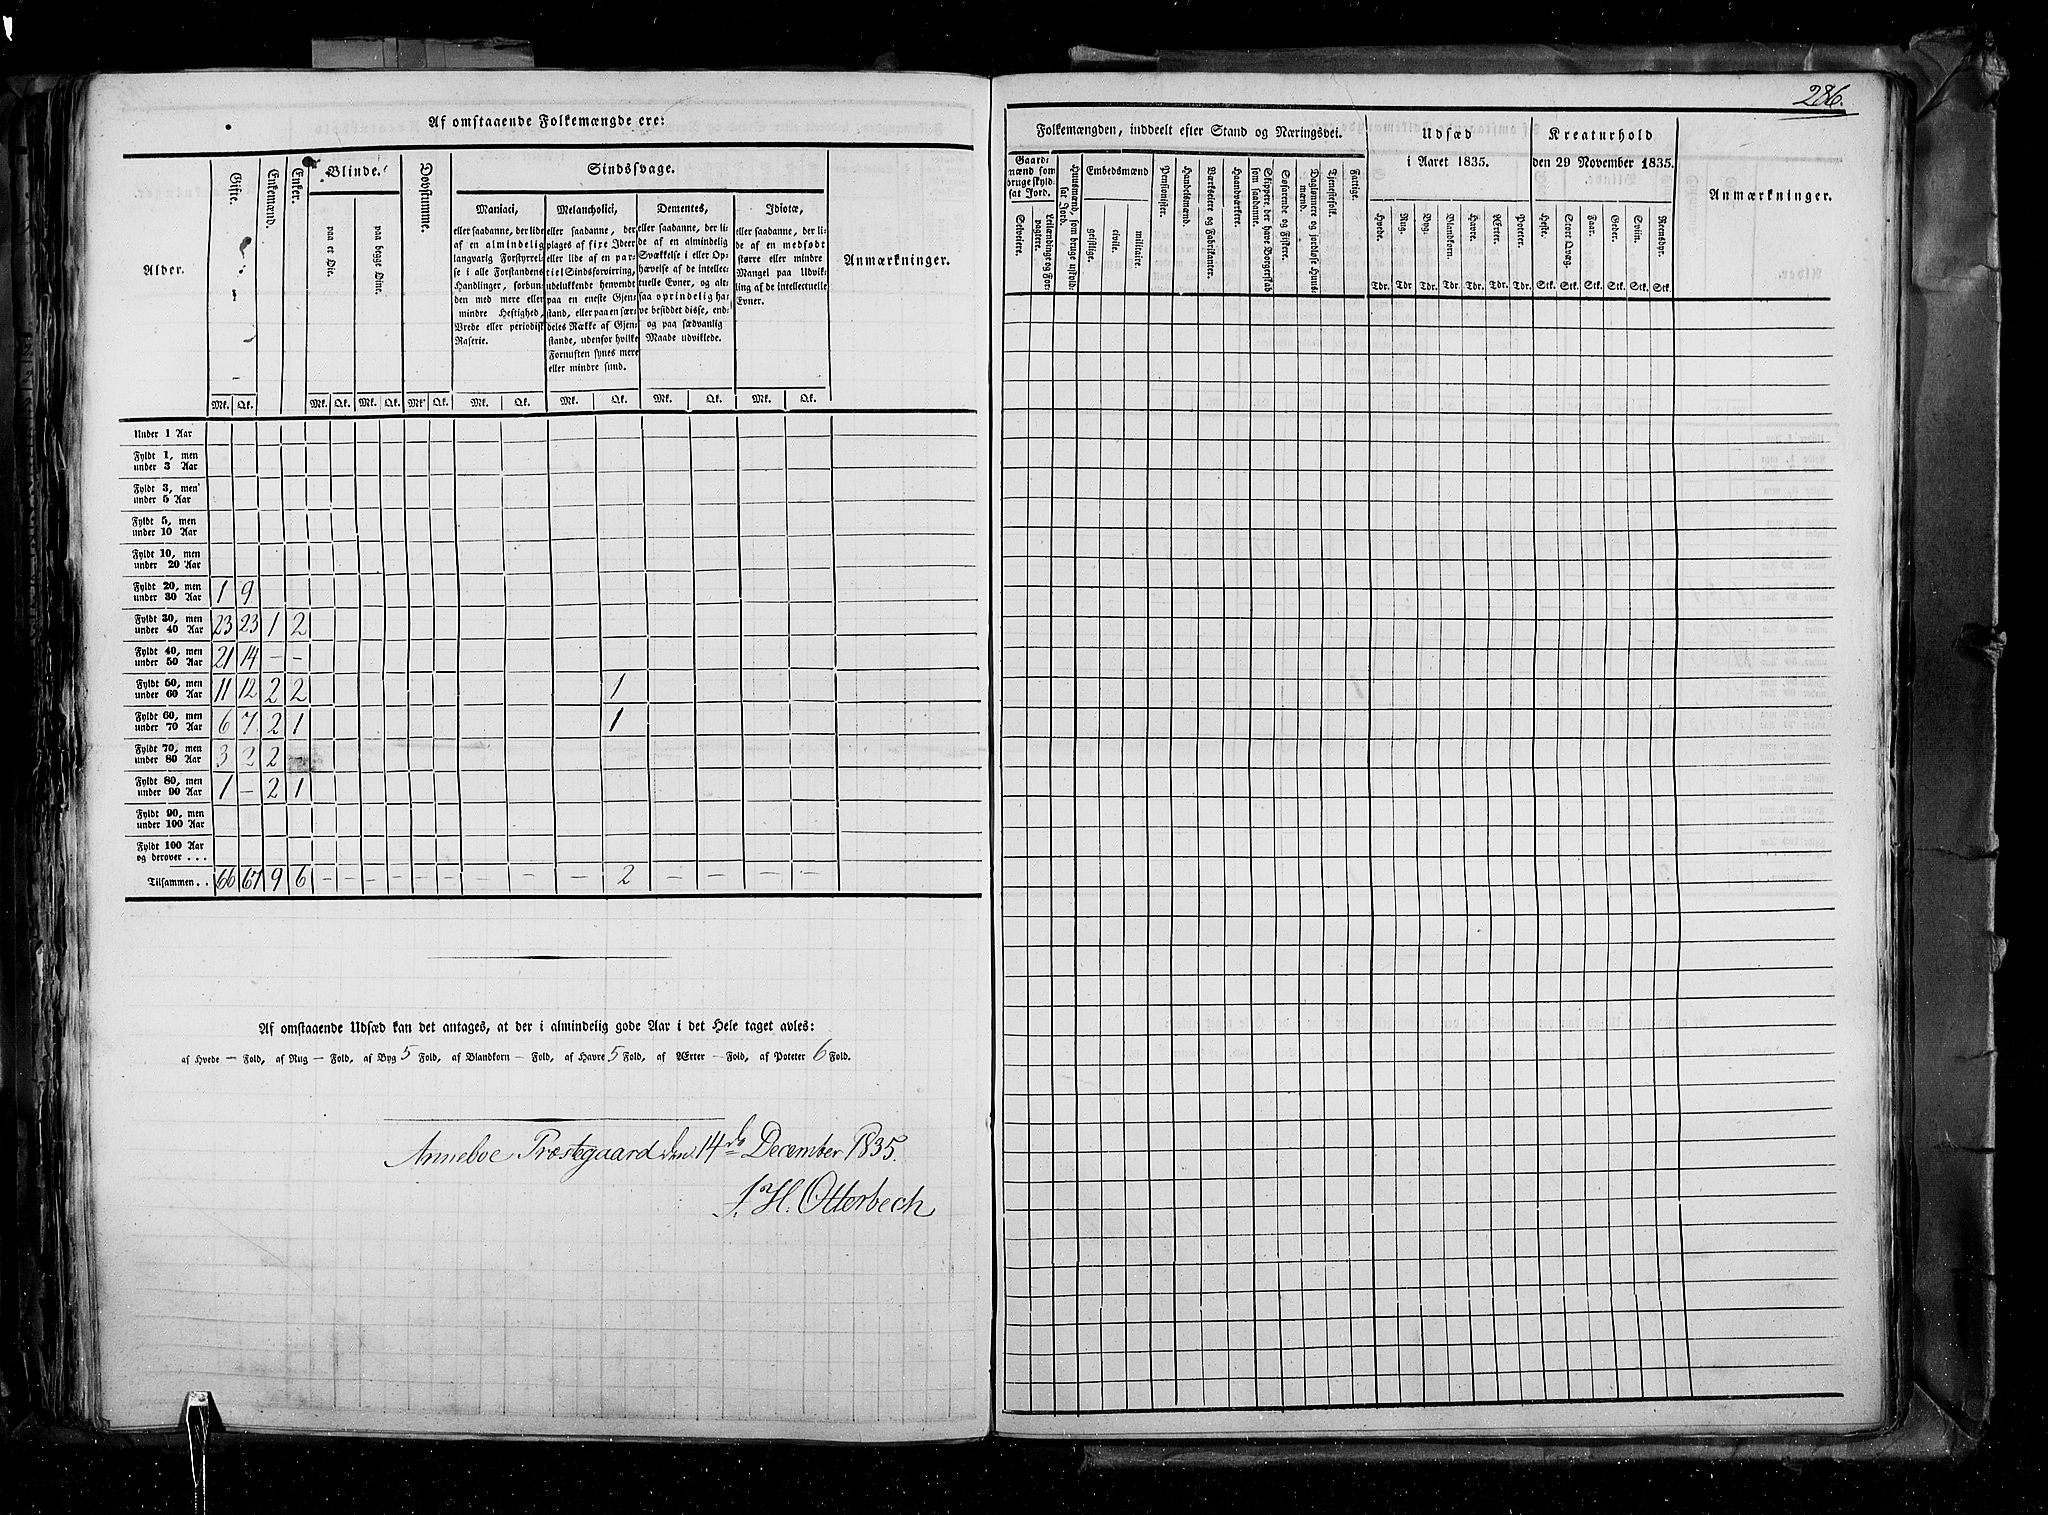 Af omstaaende Folkemængde ere:
Alder.
Gifte.
Enkemænd.
Enker.
Blinde.
paa et Øie.
paa begge Øine.
Døvstumme.
Sindssvage.
Maniaci,
eller saadanne, der lide
af en almindelig
langvarig Forstyrrel-
se i alle Forstandens
Handlinger, forbun-
den med mere eller
mindre Heftighed,
Vrede eller periodisk
Raserie.
Melancholici,
eller saadanne, der
plages af fixe Ideer
eller lide af en par-
tiel Sindsforvirring,
udelukkende henvendt
paa en eneste Gjen-
stand, eller paa en sær-
deles Række af Gjen-
stande, udenfor hvilke
Fornuften synes mere
eller mindre sund.
Dementes,
eller saadanne, der li-
de af en almindelig
Svækkelse i eller Op-
hævelse af de intellec-
tuelle Evner, og alt-
saa oprindelig ha-
ve besiddet disse, end-
og paa sædvanlig
Maade udviklede.
Idiotæ,
eller saadanne, der li-
de af en medfødt
større eller mindre
Mangel paa Udvik-
ling af de intellectuelle
Evner.
Anmærkninger.
Mk. Qk. Mk. Qk. Mk. Qk. Mk. Qk. Mk. Qk. Mk. Qk. Mk. Qk. Mk. Qk.
Under 1 Aar
Fyldt 1, men
under 3 Aar
Fyldt 3, men
under 5 Aar
Fyldt 5, men
under 10 Aar
Fyldt 10, men
under 20 Aar
Fyldt 20, men
under 30 Aar 1 9
Fyldt 30, men
under 40 Aar 23 23 1 2
Fyldt 40, men
under 50 Aar 21 14 – –
Fyldt 50, men
under 60 Aar 11 12 2 2 1
Fyldt 60, men
under 70 Aar 6 7 2 1 1
Fyldt 70, men
under 80 Aar 3 2 2
Fyldt 80, men
under 90 Aar 1 – 2 1
Fyldt 90, men
under 100 Aar
Fyldt 100 Aar
og derover . . .
Tilsammen . . 66 67 9 6 – – – – – – – – – 2 – – – –
Af omstaaende Udsæd kan det antages, at der i almindelig gode Aar i det Hele taget avles:
af Hvede – Fold, af Rug – Fold, af Byg 5 Fold, af Blandkorn – Fold, af Havre 5 Fold, af Ærter – Fold, af Poteter 6 Fold.
Anneboe Præstegaard den 14de December 1835.
J. H. Otterbech
286.
Folkemængden, inddeelt efter Stand og Næringsvei.
Gaard-
mænd som
bruge skyld-
sat Jord.
Selveiere.
Leilændinge og For-
pagtere.
Huusmænd, som bruge skyld-
sat Jord.
Embedsmænd
geistlige.
civile.
militaire.
Pensionister.
Handelsmænd.
Værkseiere og
Fabrikanter.
Haandværkere.
Skippere, der have Borgerskab
som saadanne.
Søfarende og
Fiskere.
Daglønnere og jordløse Huus-
mænd.
Tjenestefolk.
Fattige.
Udsæd
i Aaret 1835.
Hvede. Rug. Byg. Blandkorn. Havre. Ærter. Poteter.
Tdr. Tdr Tdr. Tdr. Tdr. Tdr. Tdr.
Kreaturhold
den 29 November 1835.
Heste. Stort Qvæg. Faar. Geder. Sviin. Reensdyr.
Stk. Stk. Stk. Stk. Stk. Stk.
Anmærkninger.